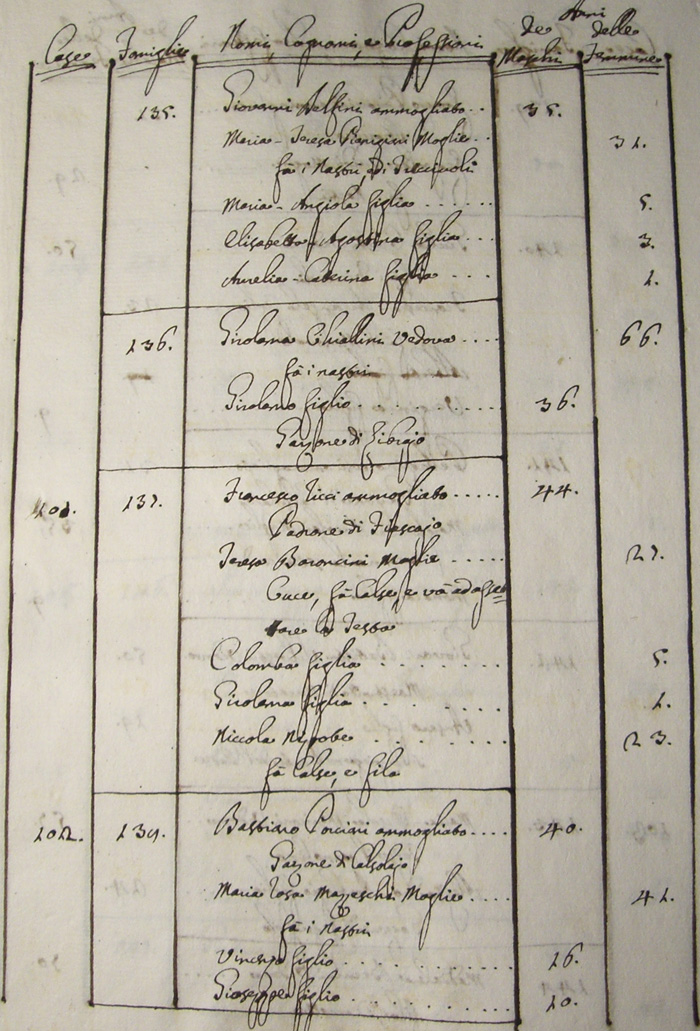 Anni
Case Famiglie Nomi, Cognomi, e Professioni de Maschi delle Femmine
135. Giovanni Delfini ammogliato.. 35.
Maria-Teresa Moglie.. 31.
Fà i Nastri, di
Maria-Angiola figlia...... 5.
Elisabetta-Agostina figlia... 3.
Aurelia-Caterina figlia.... 1.
136. Girolama Chiallini Vedova.... 66.
Fà i nastri
Girolamo figlio.......... 36.
Garzone di
101. 137. Francesco Ricci ammogliato..... 44.
Padrone di
Teresa Baroncini Moglie..... 27.
Cuce, fà Calze, e và ad
la Testa
Colomba figlia......... 5.
Girolama figlia......... 1.
Niccola Nipote......... 23.
fà Calze, e fila
102. 139. Bastiano Porciani ammogliato.... 40.
Garzone di Calzolajo
Maria Rosa Mazzeschi Moglie.... 41.
Fà i Nastri
Vincenzo figlio........... 16.
Giuseppe figlio.......... 10.